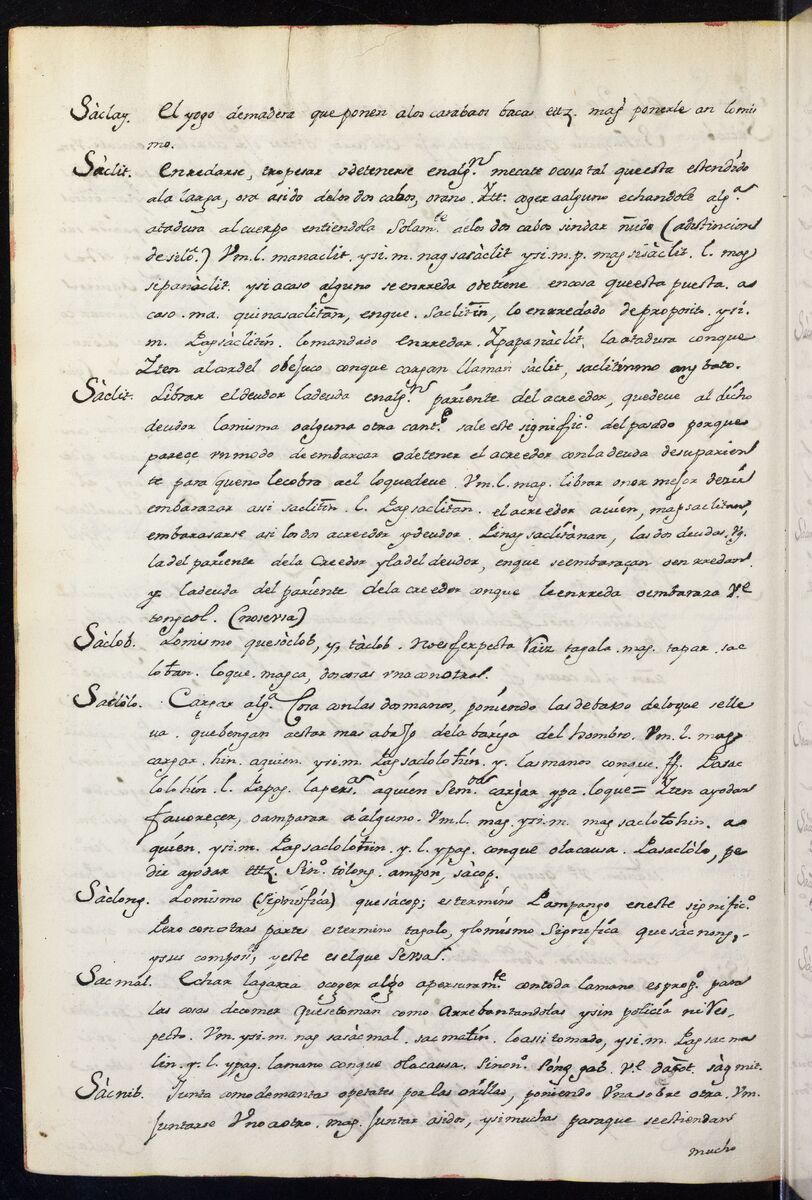 Sàclay. El yogo demadera que ponen alos carabaos bacas ettz. mag ponerle an lomis
mo.
Sàclit. enrredarse, tropesar odetenerse enalg.ⁿ mecate ocosa tal questa estendido
ala larga, ora asido delos dos cabos, orano. Ytt. coger aalguno echandole alg.ª
atadura alcuerpo entiendola Solam.te aclos dos cabos sindar ñudo (adistincion
desilò.) Vm. l. manaclit. ysi. m. nagsasàclit ysi. m. p. magsisàclit. l. mag
sipanàclit. ysi acaso alguno se enrreda odetiene encosa queesta puesta. a
caso. ma. quinasaclitan, enque. Saclitin, lo enrredado de proposito. ysi.
m. Pagsàclitin. lomandado enrredar. Ypapanàclit, la atadura conque
Yten alcordel obejuco conque cargan llaman sàclit, saclitinmo ang bato.
Sàclit. Librar eldeudor ladeuda enalg.ⁿ pariente del acreedor, quedeve al dicho
deudor lamisma oalguna otra cant.e sale este signific.º del pasado porque
pareçe vn modo deembarcar odetener el acreedor conla deuda desuparien
te para queno lecobra ael loquedeve. Vm. l. mag. librar o nor mejor dezir
embarazar assi saclitin. l. Pagsaclitan. el acreedor aquien, magsaclitan,
embarasarse asi los dos acreedor ydeudor. Pinagsaclitanan, las dos deudas. V.g.
la del pariente dela Creedor yladel deudor, enque seembaraçan oenrredan
y ladeuda del pariente dela creedor conque leenrreda oembaraza V.e
tongcol. (noseusa)
Sàclob. Lomismo quesòclob, y, tàclob. Noesperfecta Vaiz tagala. mag. tapar. sac
loban. loque. magca, doscosas vna conotra.
Saclòlo. Cargar alg.ª Cosa conlas dosmanos, poniendo las debaxo deloque selle
va. quebengan aestar mas abajo dela bariga del hombro. Vm. l. mag
cargar. hin. aquien. ysi. m. Pagsaclolohin. y. las manos conque. ff. Pasac
lolohin. l. Papag. laper.as aquien Sem.tas cargar ypa. loque= Yten ayudar
favoreçer, oamparar aalguno. Vm. l. mag. ysi. m. magsaclolohin. a
quien. ysi. m. Pagsaclolohin. y. l. ypag. conque olacausa. Pasaclòlo, pe
dir ayudar ettz. Sin.º tòlong. ampon, sàcop.
Sàclong. Lomismo (significa) quesàcop; estermino Pampango eneste signific.º
Pero conotras partes estermino tagalo, ylomismo significa que sàcnong,
ysus compon.s, yeste es elque Seusa.
Sacmàl. Echar lagarra ocoger algo apersurram.te contoda lamano esprop.º para
las cosas decomer quesetoman como Arrebantandolas ysin policia ni Ves
pecto. Vm. ysi. m. nagsasàcmal. sacmalin. loassi tomado, ysi. m. Pagsacma
lin. y. l. ypag. lamano conque olacausa. Sinon.º sòng gab. V.e dapot. sàgmit.
Sàcnib. Junta como demantas opetates por las orillas, poniendo Vna sobre otra. Vm.
Juntarse Vno aotro. mag. Juntar asidos, ysimuchos paraque seestiendan
mucho